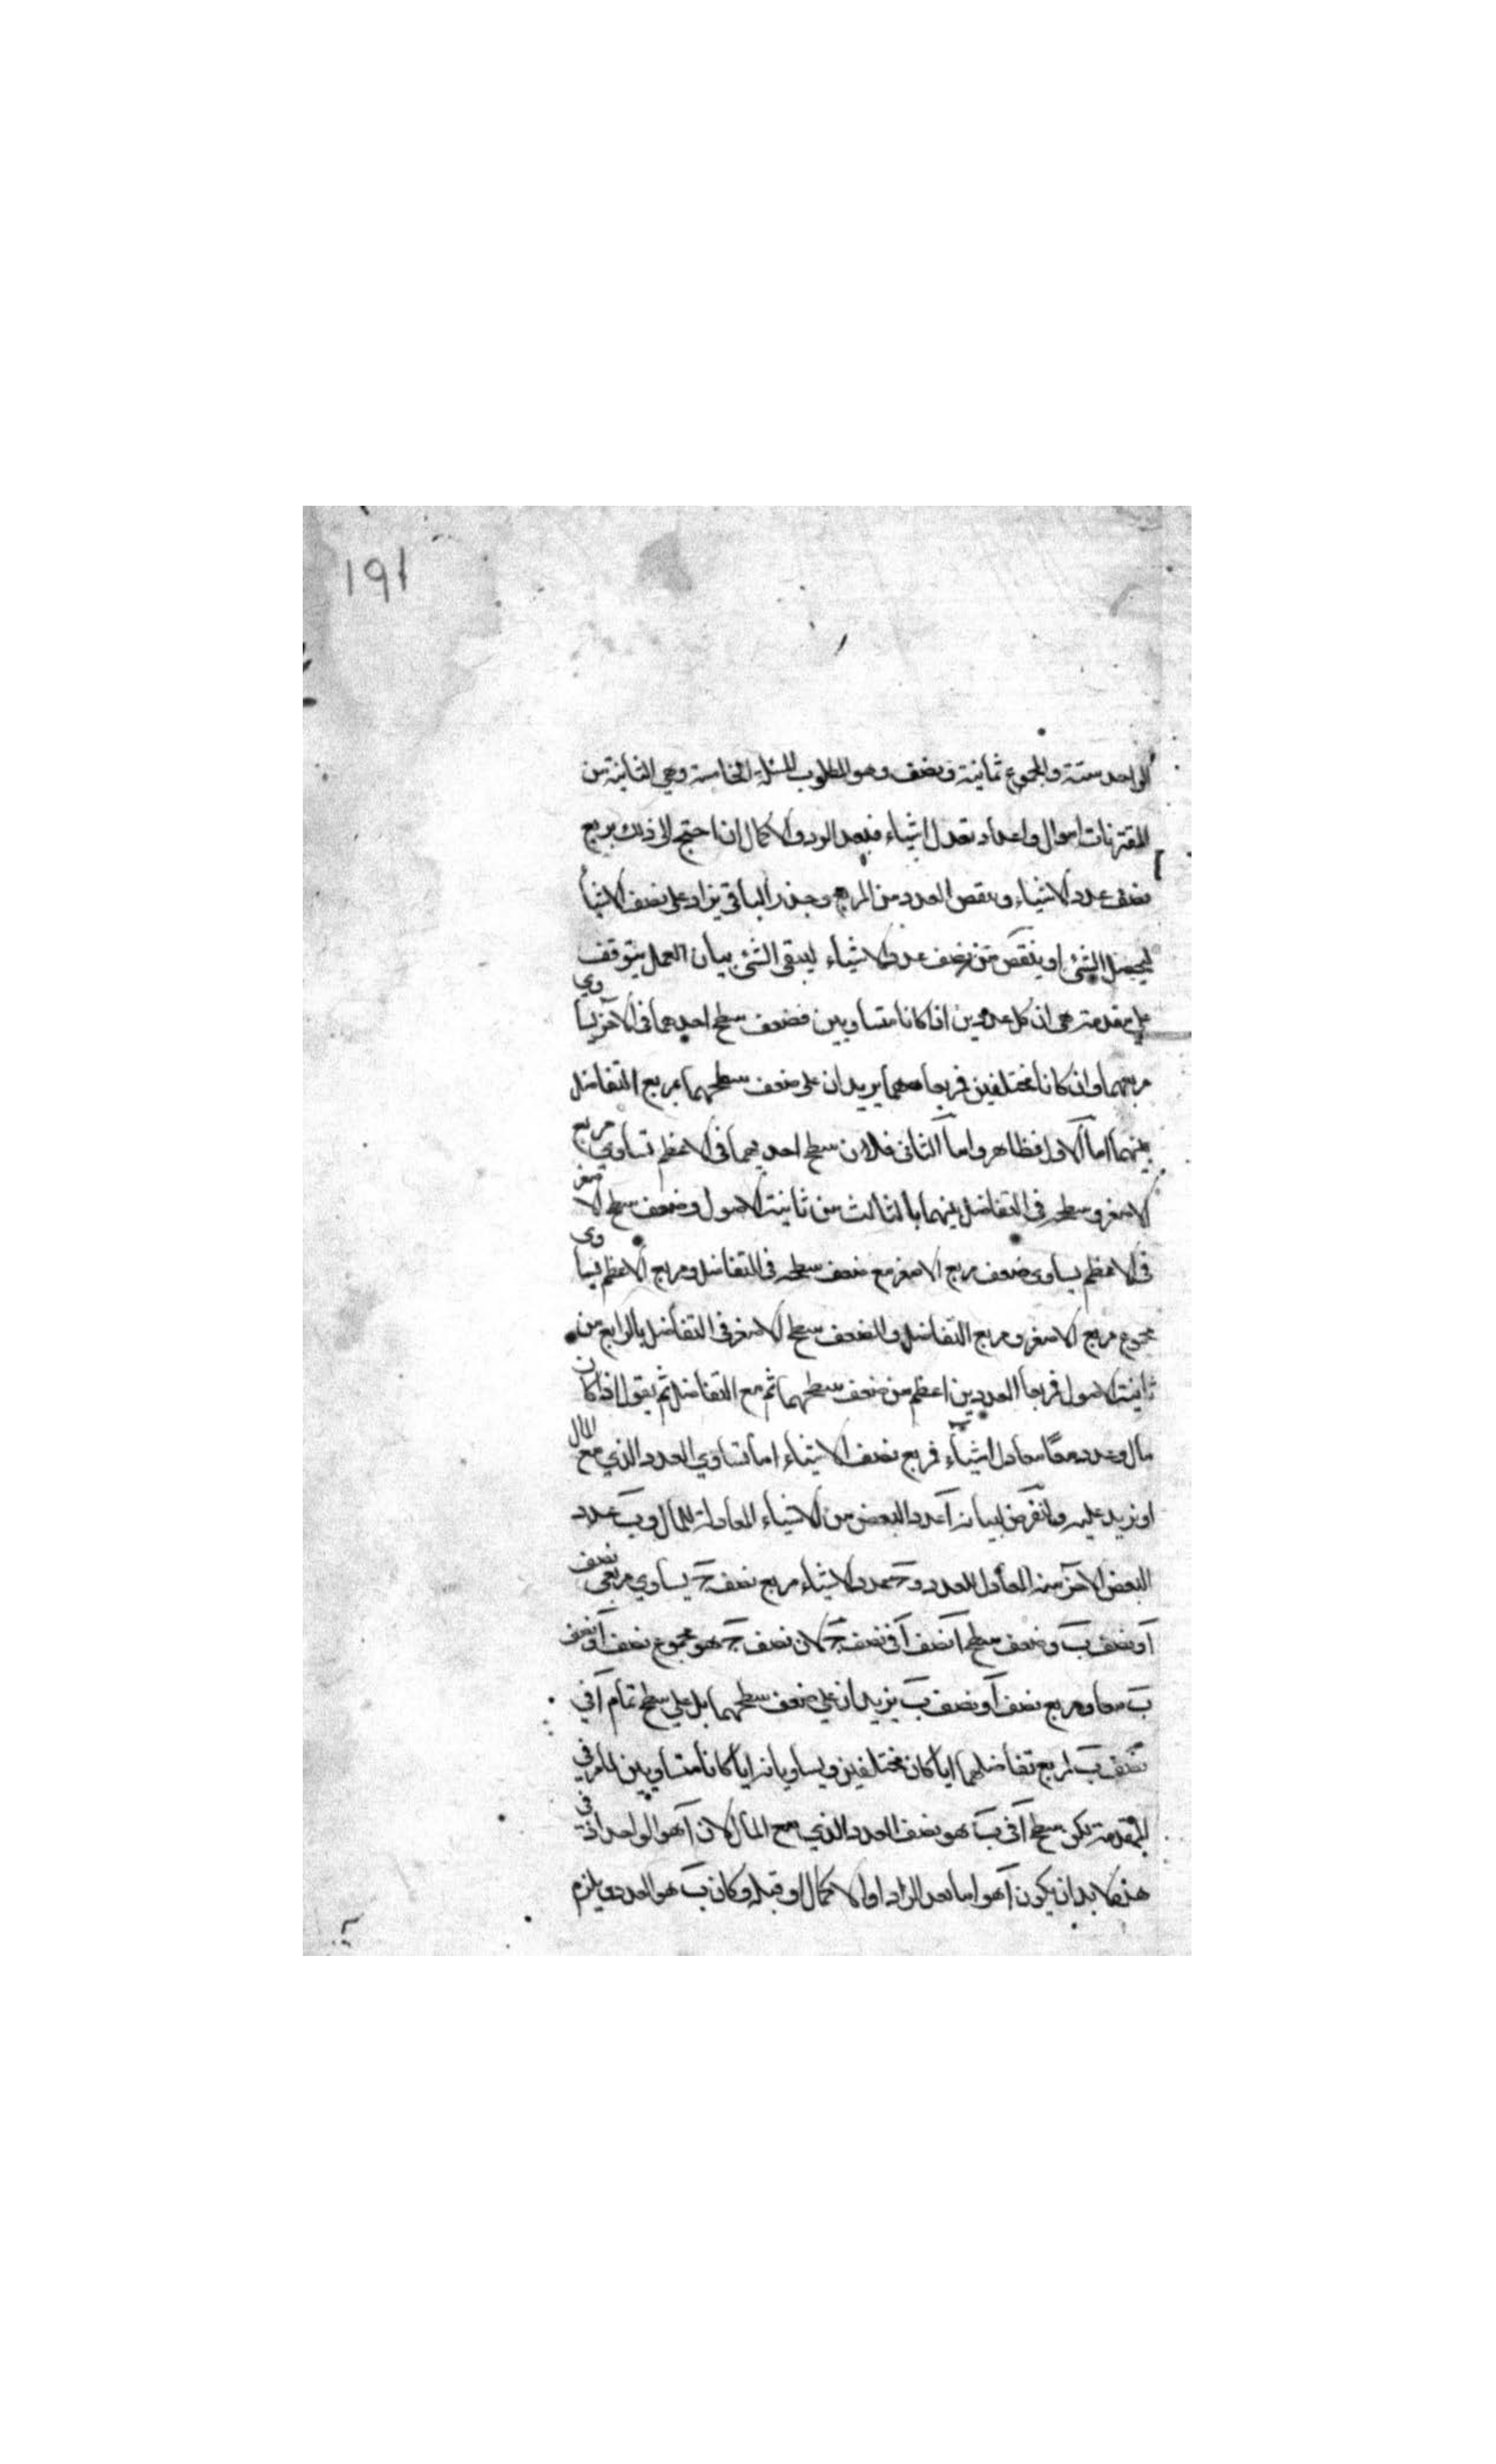 191
الواحد ستة والمجموع ثمانية ونصف وهو المطلوب المسئلة الخامسة وهي الثانية من
المقترنات اموال واعداد تعدل اشياء فبعد الرد والاكمال ان احتج الى ذلك يربع
نصف عدد الاشياء وينقص العدد من المربع وجذر الباقي يزاد على نصف الاشيا
ليحصل الشئ او ينقص من نصف عدد الاشياء ليبقى الشئ بيان العمل يتوقف
على مقدمة هي ان كل عددين اذا كانا متساويين فضعف سطح احدهما في الآخر يساوي
مربعهما وان كانا مختلفين فربعاهما يزيدان على ضعف سطحهما بمربع التفاضل
بينهما اما الاول فظاهر واما الثاني فلان سطح احديهما في الاعظم تساوي مربع
الاصغر وسطحه في التفاضل بينهما بالثالث من ثانية الاصول وضعف سطح الاصغر
في الاعظم يساوي ضعف مربع الاصغر مع ضعف سطحه في التفاضل ومربع الاعظم يساوي
مجموع مربع الاصغر ومربع التفاضل والضعف سطح الاصغر في التفاضل بالرابع من
ثانية الاصول فربعا العددين اعظم من ضعف سطحهما ثم مع التفاضل ثم يقول اذا كان
مال وعدد معًا معادل اشياء فربع نصف الاشياء اما تساوي العدد الذي مع المال
او نزيد عليه ولنفرض لبيانه آ عدد البعض من الاشياء المعادلة للمال وب عدد
البعض الآخر منه المعادل للعدد وحـ عدد الاشياء مربع نصف حـ يساوي مربعى نصف
آ ونصف ب وضعف سطح آ نصف آ في نصف ب لان نصف حـ هو مجموع نصف آ ونصف
ب معا ومربع نصف آ ونصف ب يزيدان على ضعف سطحهما بل على سطح تمام آ في
نصف ب لمربع تفاضلهما ايا كان مختلفين ويساويانه ايا كانا متساويين لما مر في
المقدمة يكن سطح آ في ب هو نصف العدد الذي مع المال لان آ هو الواحد اذ في
هذه لا بد ان يكون آ هو اما بعد الراد او الاكمال او قبله وكان ب هو العدد ويلزم